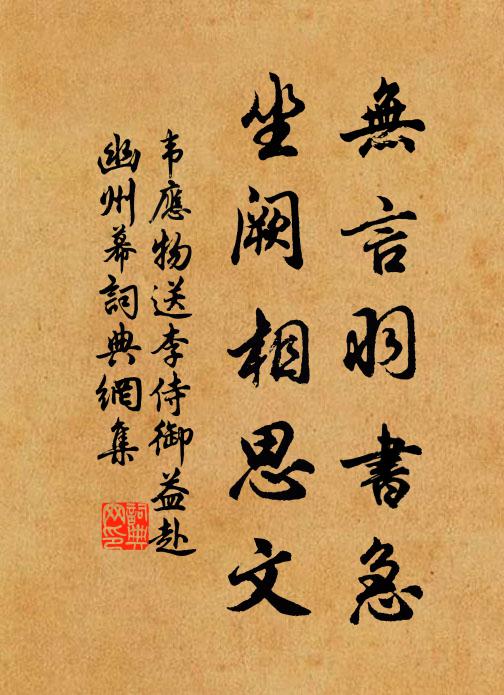 無言羽書急
坐阙相思文
韦應物送李侍御益赴
幽州幕詞典網集
詞典网印